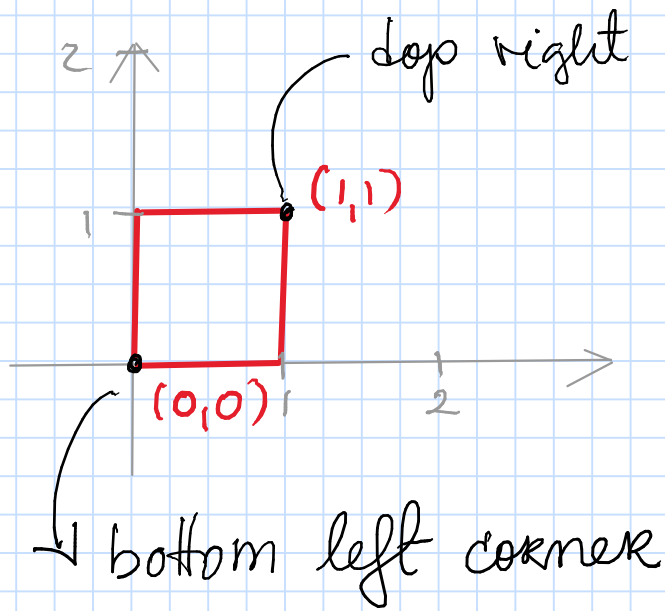 top right
2
(1,1)
1
(0,0) 1 2
bottom left corner